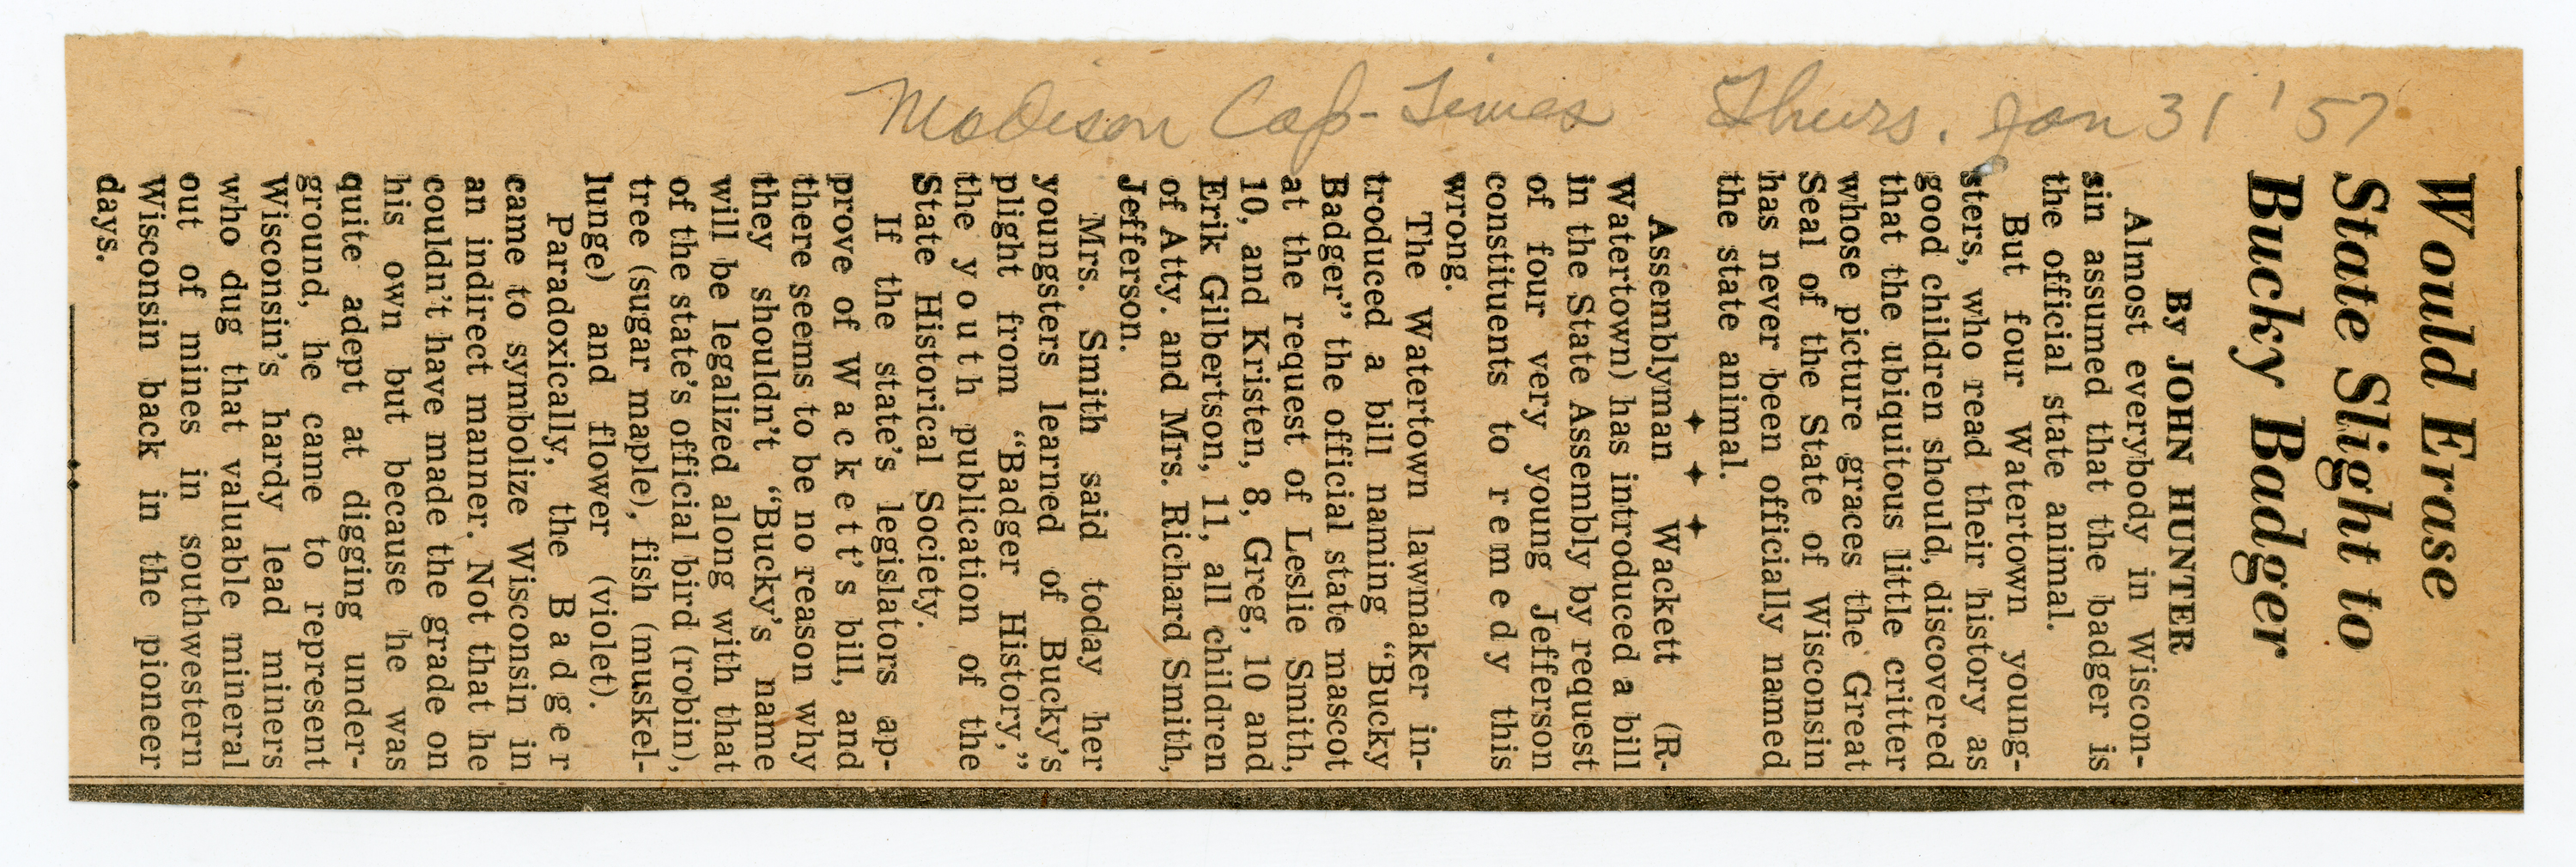 Madison Cap-Times Thurs. Jan 31 '57
Would Erase
State Slight to
Bucky Badger
By JOHN HUNTER
Almost everybody in Wiscon-
sin assumed that the badger is
the official state animal.
But four Watertown young-
sters, who read their history as
good children should, discovered
that the ubiquitous little critter
whose picture graces the Great
Seal of the State of Wisconsin
has never been officially named
the state animal.
Assemblyman Wackett (R-
Watertown) has introduced a bill
in the State Assembly by request
of four very young Jefferson
constituents to remedy this
wrong.
The Watertown lawmaker in-
troduced a bill naming "Bucky
Badger" the official state mascot
at the request of Leslie Smith,
10, and Kristen, 8, Greg, 10 and
Erik Gilbertson, 11, all children
of Atty. and Mrs. Richard Smith,
Jefferson.
Mrs. Smith said today her
youngsters learned of Bucky's
plight from "Badger History,"
the youth publication of the
State Historical Society.
If the state's legislators ap-
prove of Wackett's bill, and
there seems to be no reason why
they shouldn't "Bucky's name
will be legalized along with that
of the state's official bird (robin),
tree (sugar maple), fish (muskel-
lunge) and flower (violet).
Paradoxically, the Badger
came to symbolize Wisconsin in
an indirect manner. Not that he
couldn't have made the grade on
his own but because he was
quite adept at digging under-
ground, he came to represent
Wisconsin's hardy lead miners
who dug that valuable mineral
out of mines in southwestern
Wisconsin back in the pioneer
days.